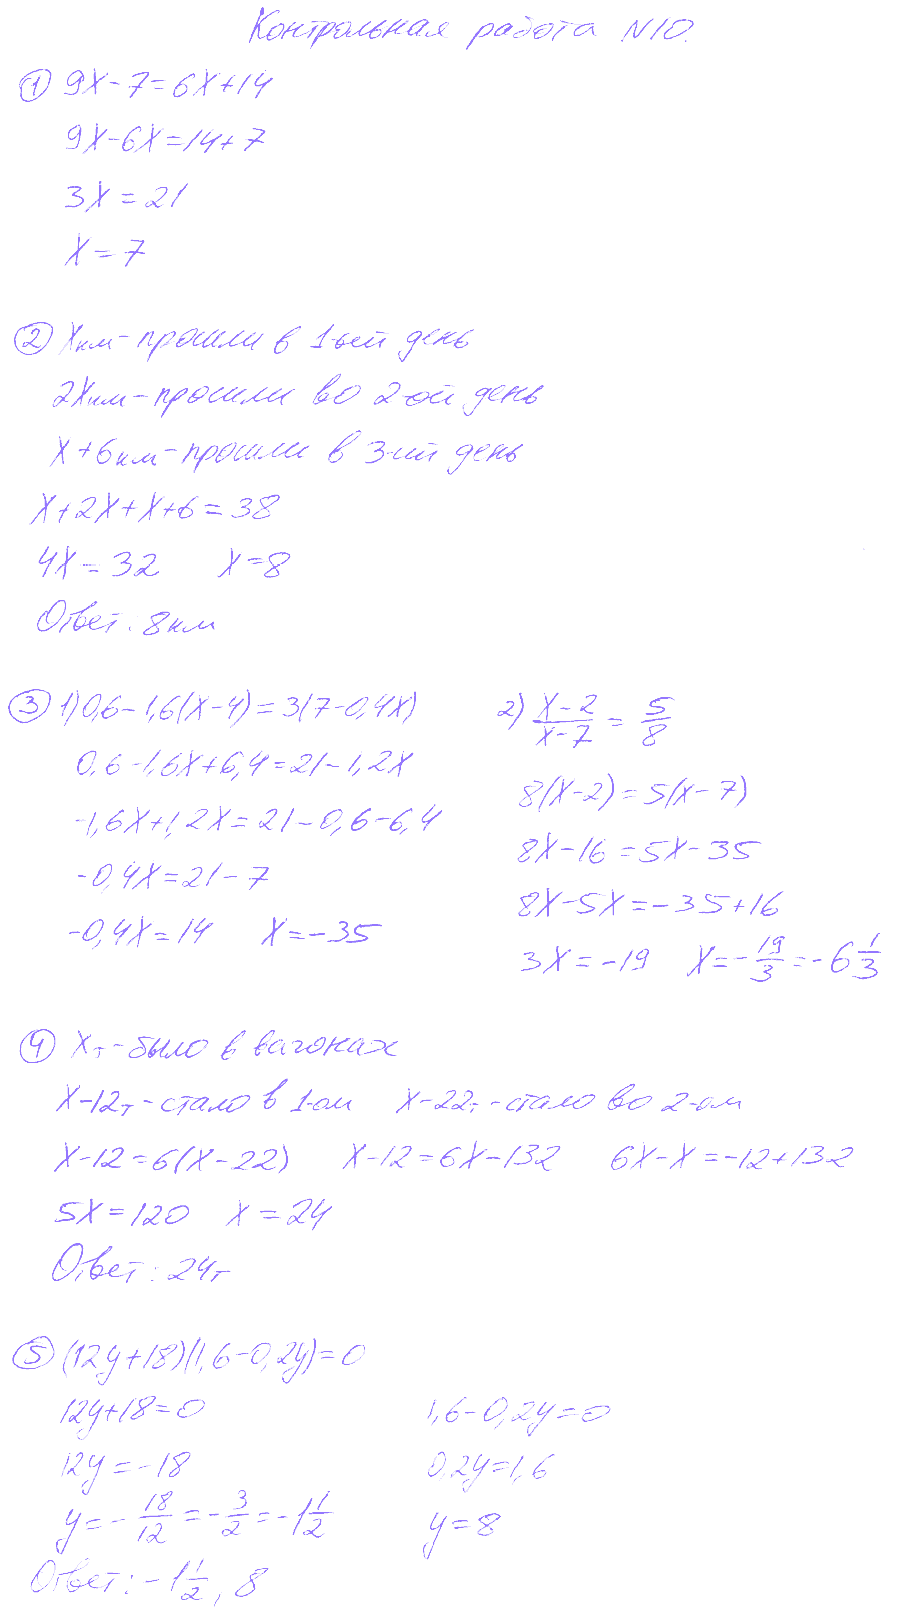 Контрольная работа N10.
① 9x-7=6x+14
9x-6x=14+7
3x=21
x=7
② xкм-прошли в 1-ый день
2xкм-прошли во 2-ой день
x+6км-прошли в 3-ий день
x+2x+x+6=38
4x=32 x=8
Ответ: 8км
③ 1) 0,6-1,6(x-4)=3(7-0,4x)
0,6-1,6x+6,4=21-1,2x
-1,6x+1,2x=21-0,6-6,4
-0,4x=21-7
-0,4x=14 x=-35
2) (x-2)/(x-7)=5/8
8(x-2)=5(x-7)
8x-16=5x-35
8x-5x=-35+16
3x=-19 x=-19/3=-6 1/3
④ xт-было в вагонах
x-12т-стало в 1-ом x-22т-стало во 2-ом
x-12=6(x-22) x-12=6x-132 6x-x=-12+132
5x=120 x=24
Ответ: 24т
⑤ (12y+18)(1,6-0,2y)=0
12y+18=0
12y=-18
y=-18/12=-3/2=-1 1/2
1,6-0,2y=0
0,2y=1,6
y=8
Ответ: -1 1/2, 8